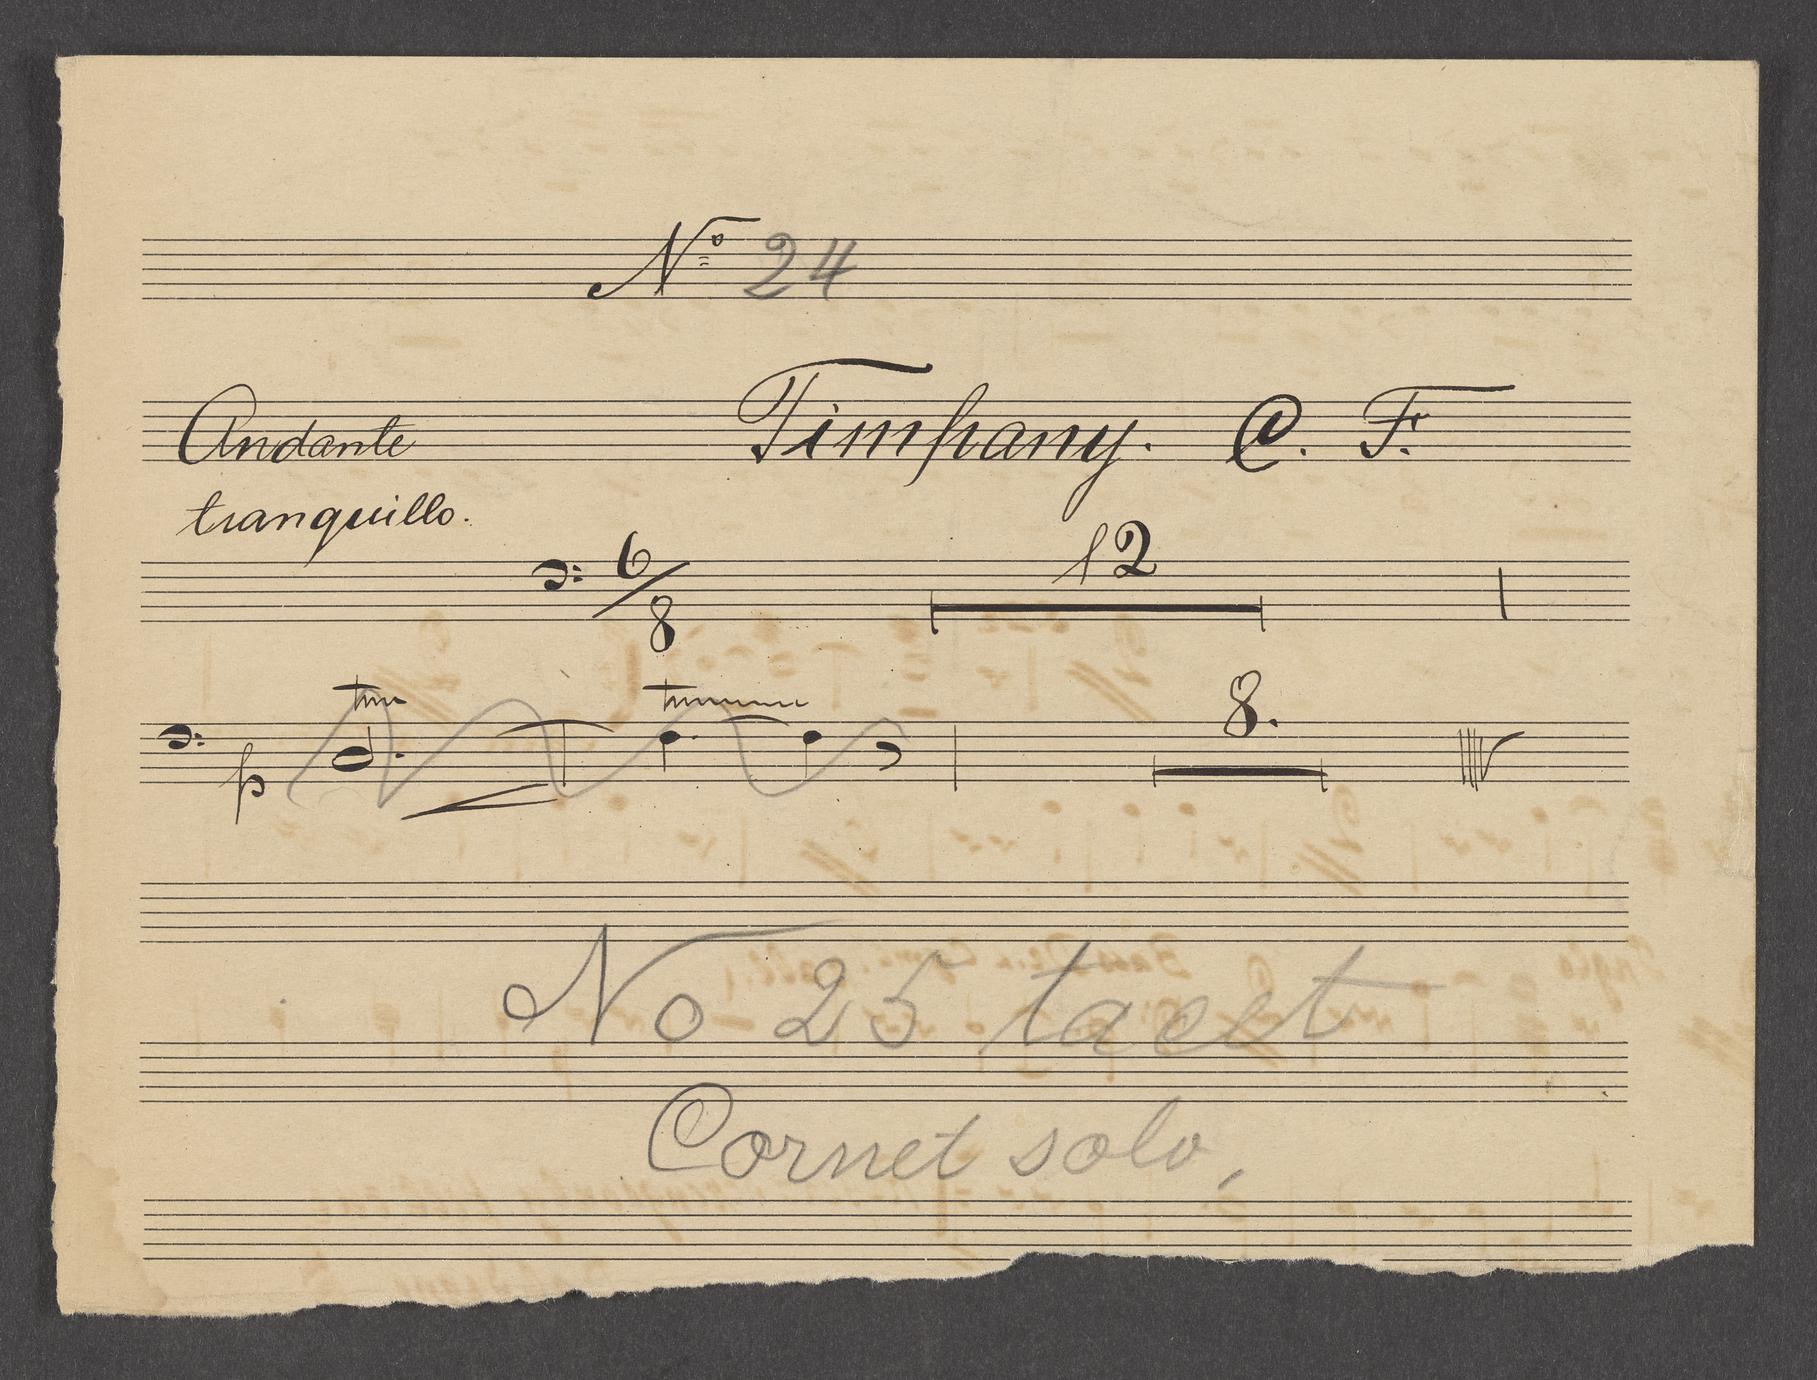 No 24
Andante Timpany. C. F.
tranquillo.
6/8 12
tr tr 8.
p
No 25 tacet
Cornet solo,